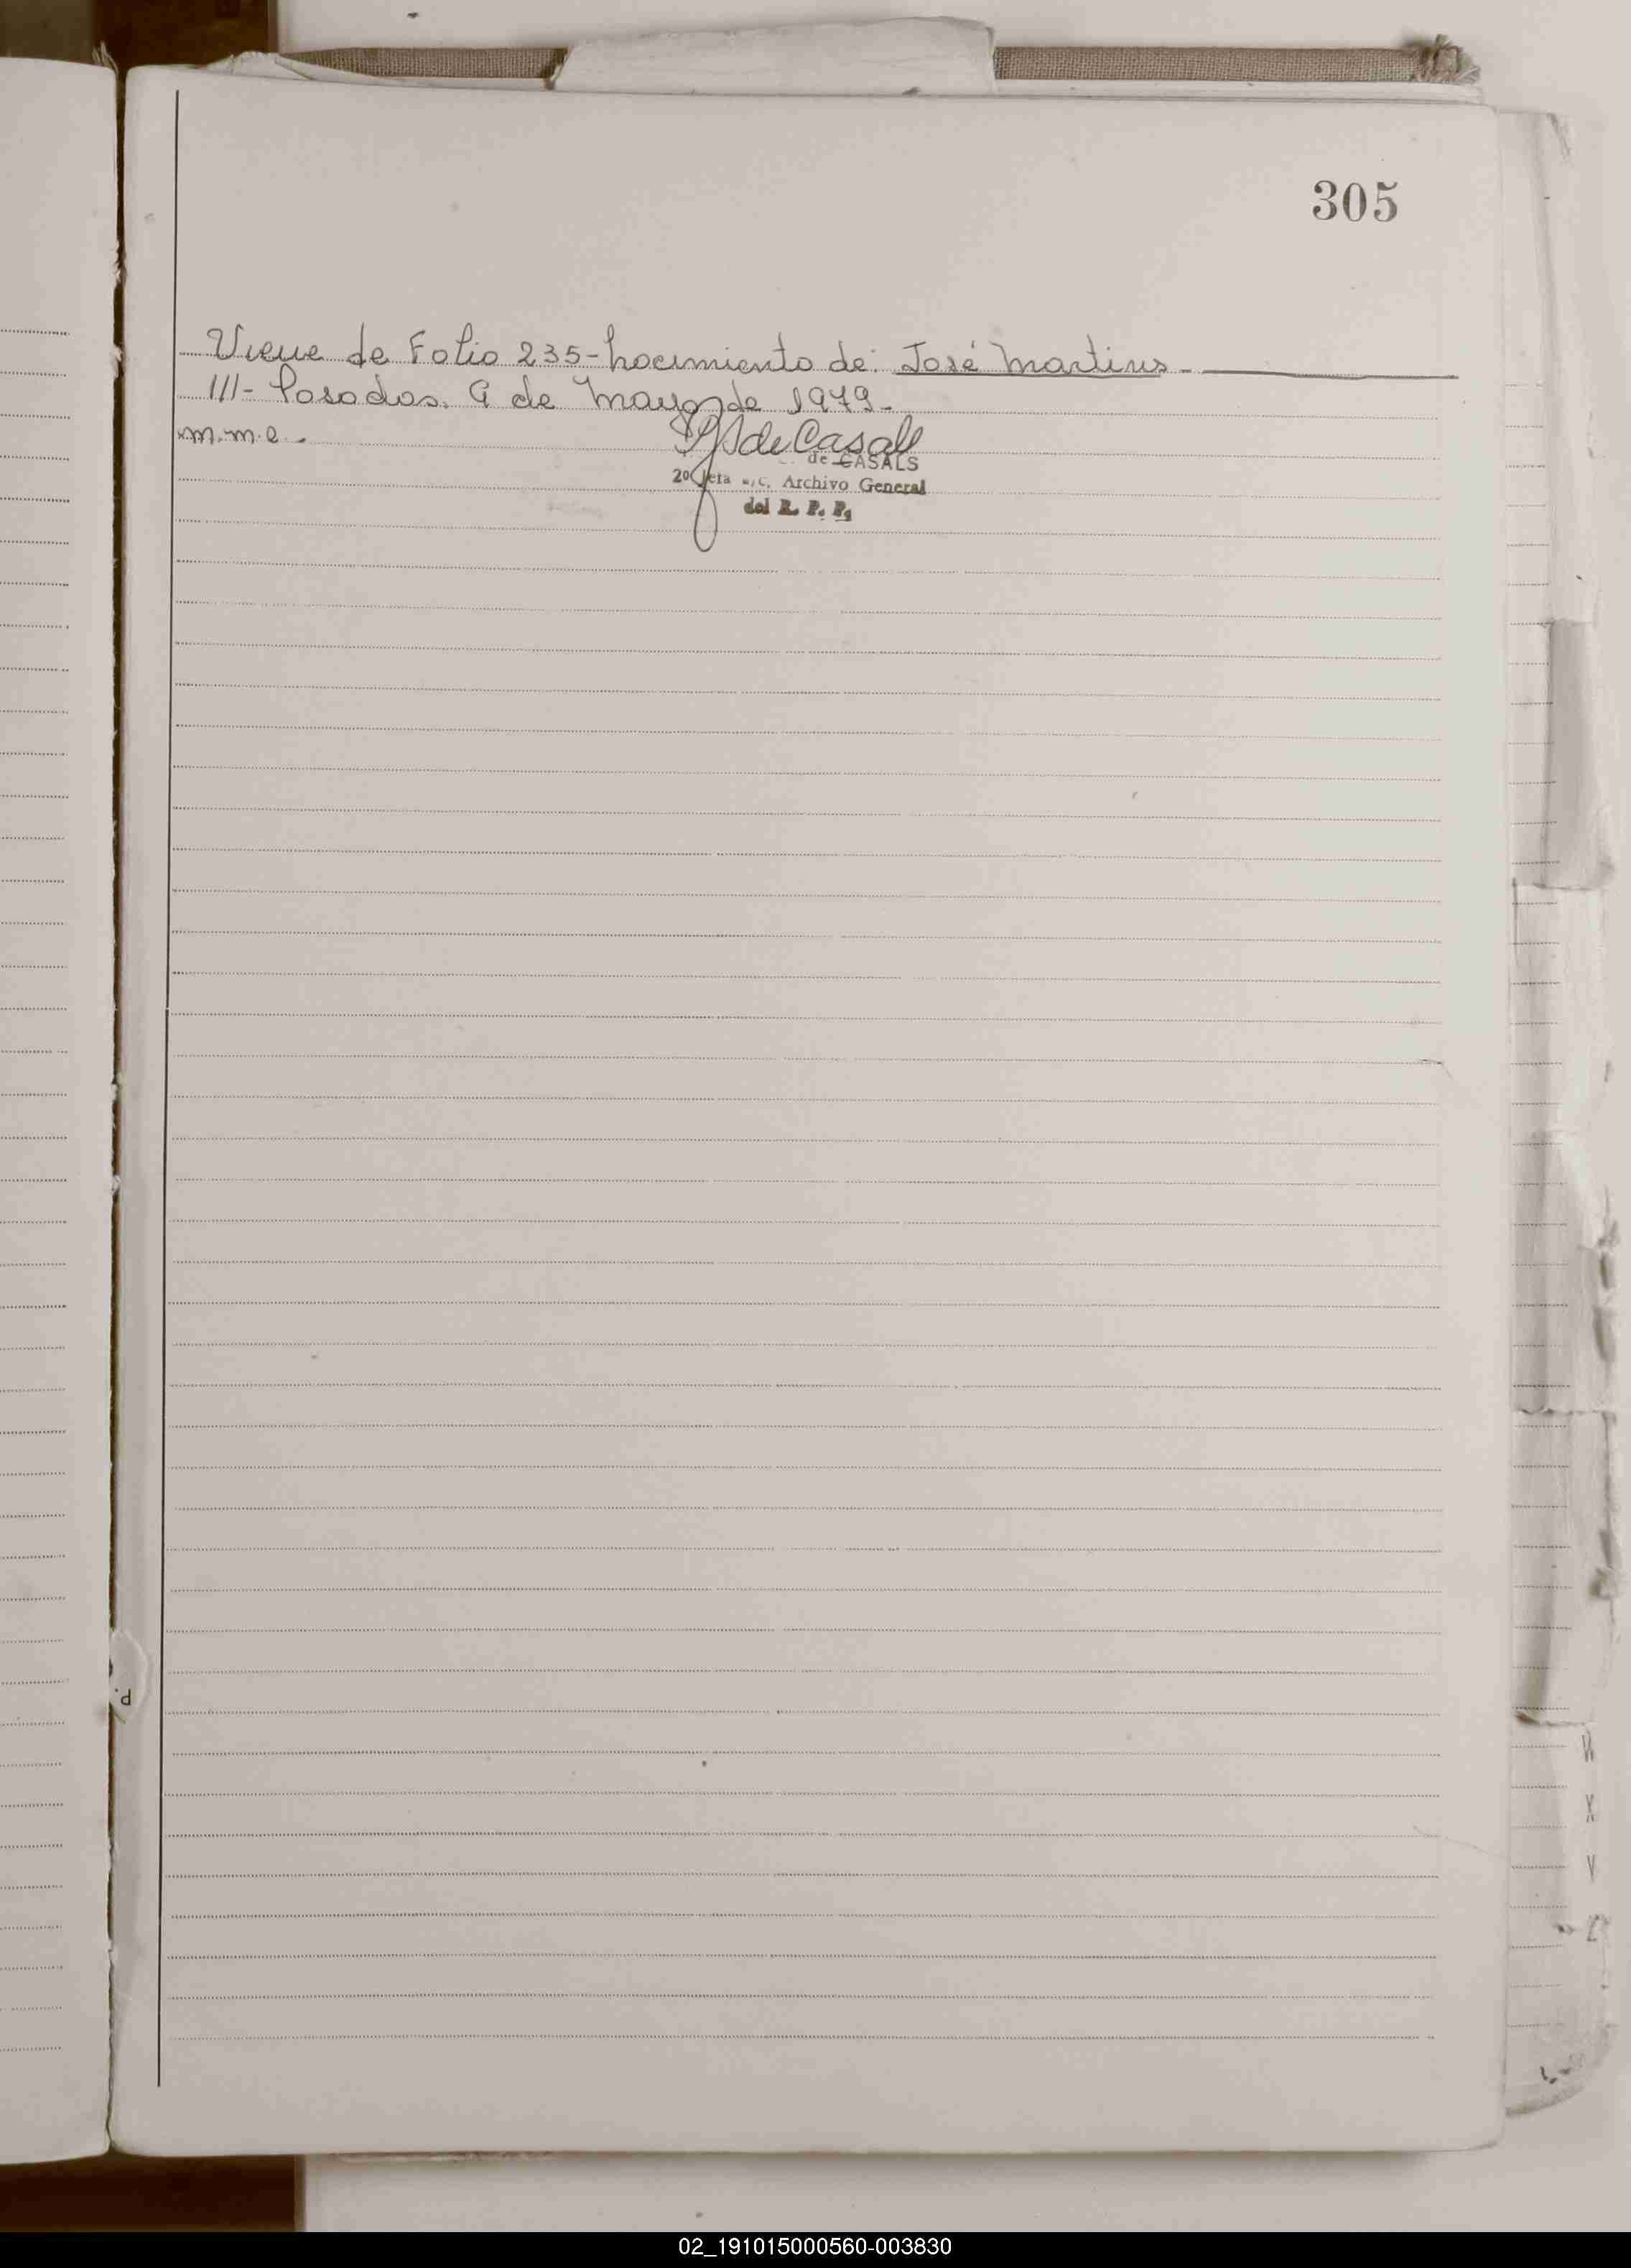 305
Viene de Folio 235- Nacimiento de: José Martins -
///- Posadas. 9 de Mayo de 1979.-
m.m.e.-
de Casals
de CASALS
Archivo General
del R. P. P.
P.
W
X
Y
Z
02_191015000560-003830